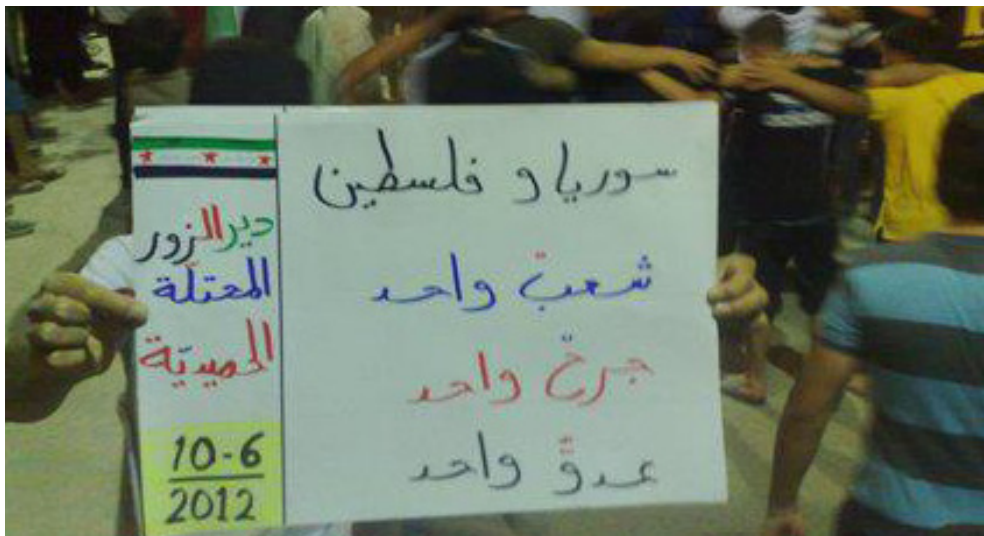 سوريا و فلسطين
شعبٌ واحد
جرحٌ واحد
عدوٌّ واحد
دير الزور
المحتلّة
الحميديّة
10-6
2012